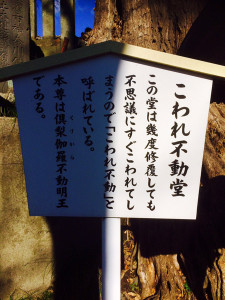 こわれ不動堂
この堂は幾度修復しても
不思議にすぐこわれてし
まうので「こわれ不動」と
呼ばれている。
本尊は倶梨伽羅不動明王
くりから
である。